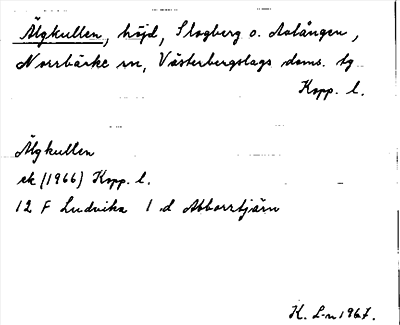 Älgkullen, höjd, Skogberg o. Aalången,
Norrbärke sn, Västerbergslags doms. tg
Kopp. l.
Älgkullen
ek (1966) Kopp. l.
12 F Ludvika 1 d Abborrtjärn
K. L-n 1967.